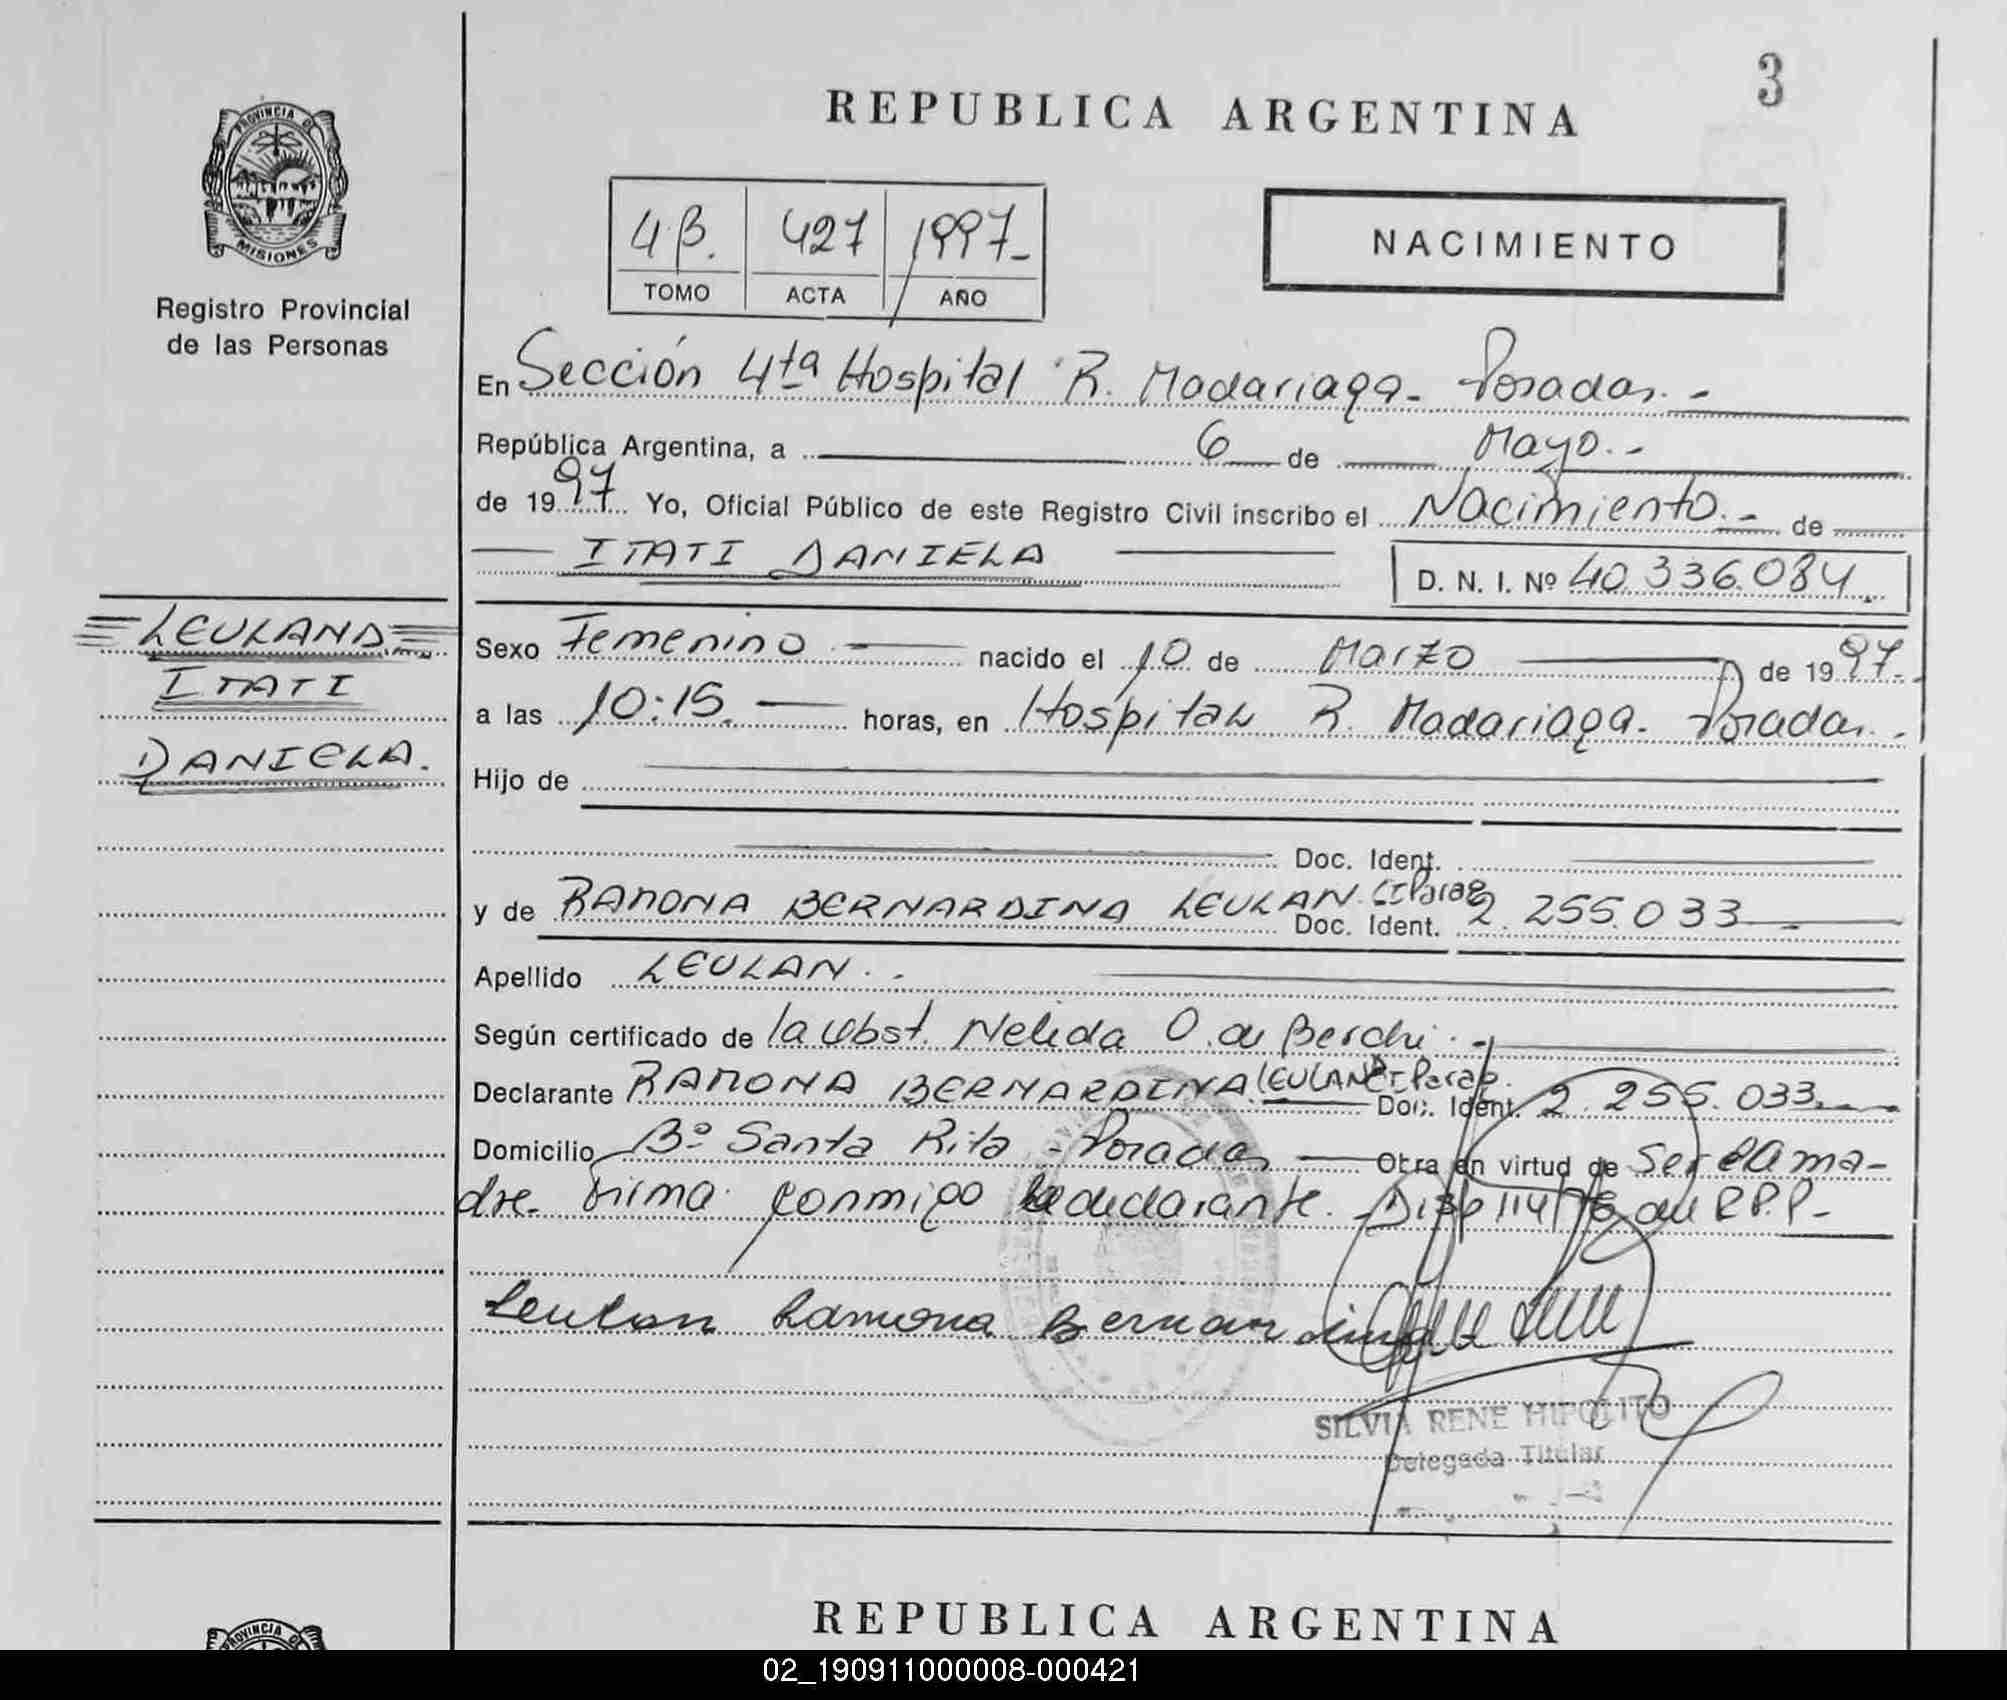 3
REPUBLICA ARGENTINA
PROVINCIA DE
MISIONES
Registro Provincial
de las Personas
4 B. 427 1997-
TOMO ACTA AÑO
NACIMIENTO
En Sección 4ta Hospital R. Madariaga- Posadas.-
República Argentina, a 6 de Mayo.-
de 1997 Yo, Oficial Público de este Registro Civil inscribo el Nacimiento.- de
ITATI DANIELA
D. N. I. Nº 40.336.084
LEULAND
ITATI
DANIELA.
Sexo Femenino nacido el 10 de Marzo de 1997.-
a las 10:15. horas, en Hospital R. Madariaga- Posadas.-
Hijo de
Doc. Ident.
y de RAMONA BERNARDINA LEULAN CI Parag Doc. Ident. 2.255.033
Apellido LEULAN..
Según certificado de la Obst. Nelida O. de Berchi.-
Declarante RAMONA BERNARDINA LEULAN CI Parag. Doc. Ident. 2.255.033
Domicilio Bº Santa Rita - Posadas Obra en virtud de Ser la ma-
dre. Firma conmigo la declarante. Disp 114/76 del R.P.P-
Leulan Ramona Bernardina
SILVIA RENE HIPOLITO
Delegada Titular
PROVINCIA DE
REPUBLICA ARGENTINA
02_190911000008-000421